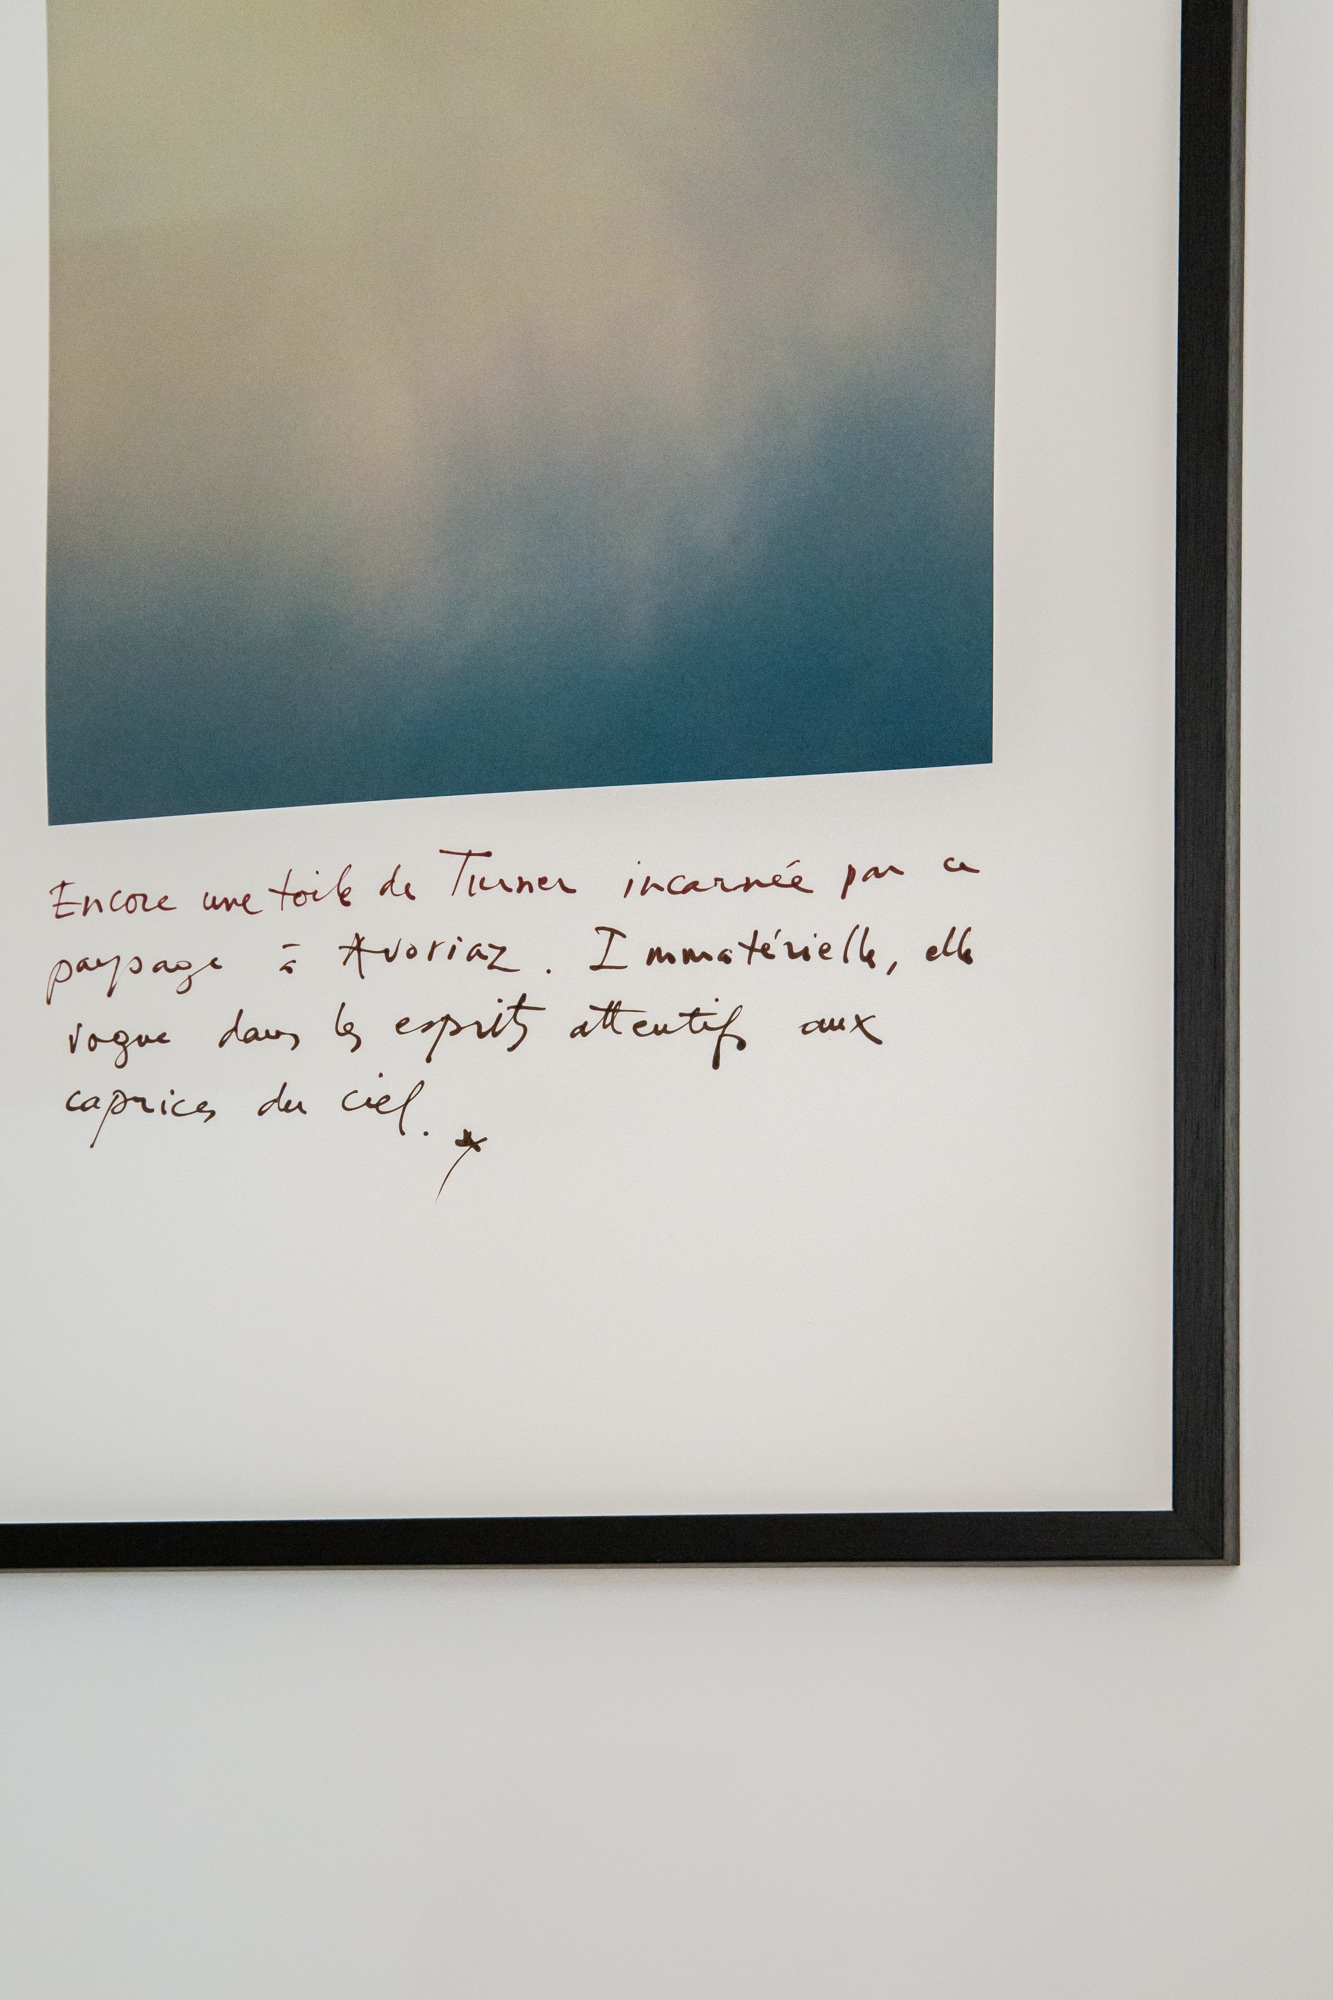 Encore une toile de Turner incarnée par ce
paysage à Avoriaz. Immatérielle, elle
vogue dans les esprits attentifs aux
caprices du ciel.